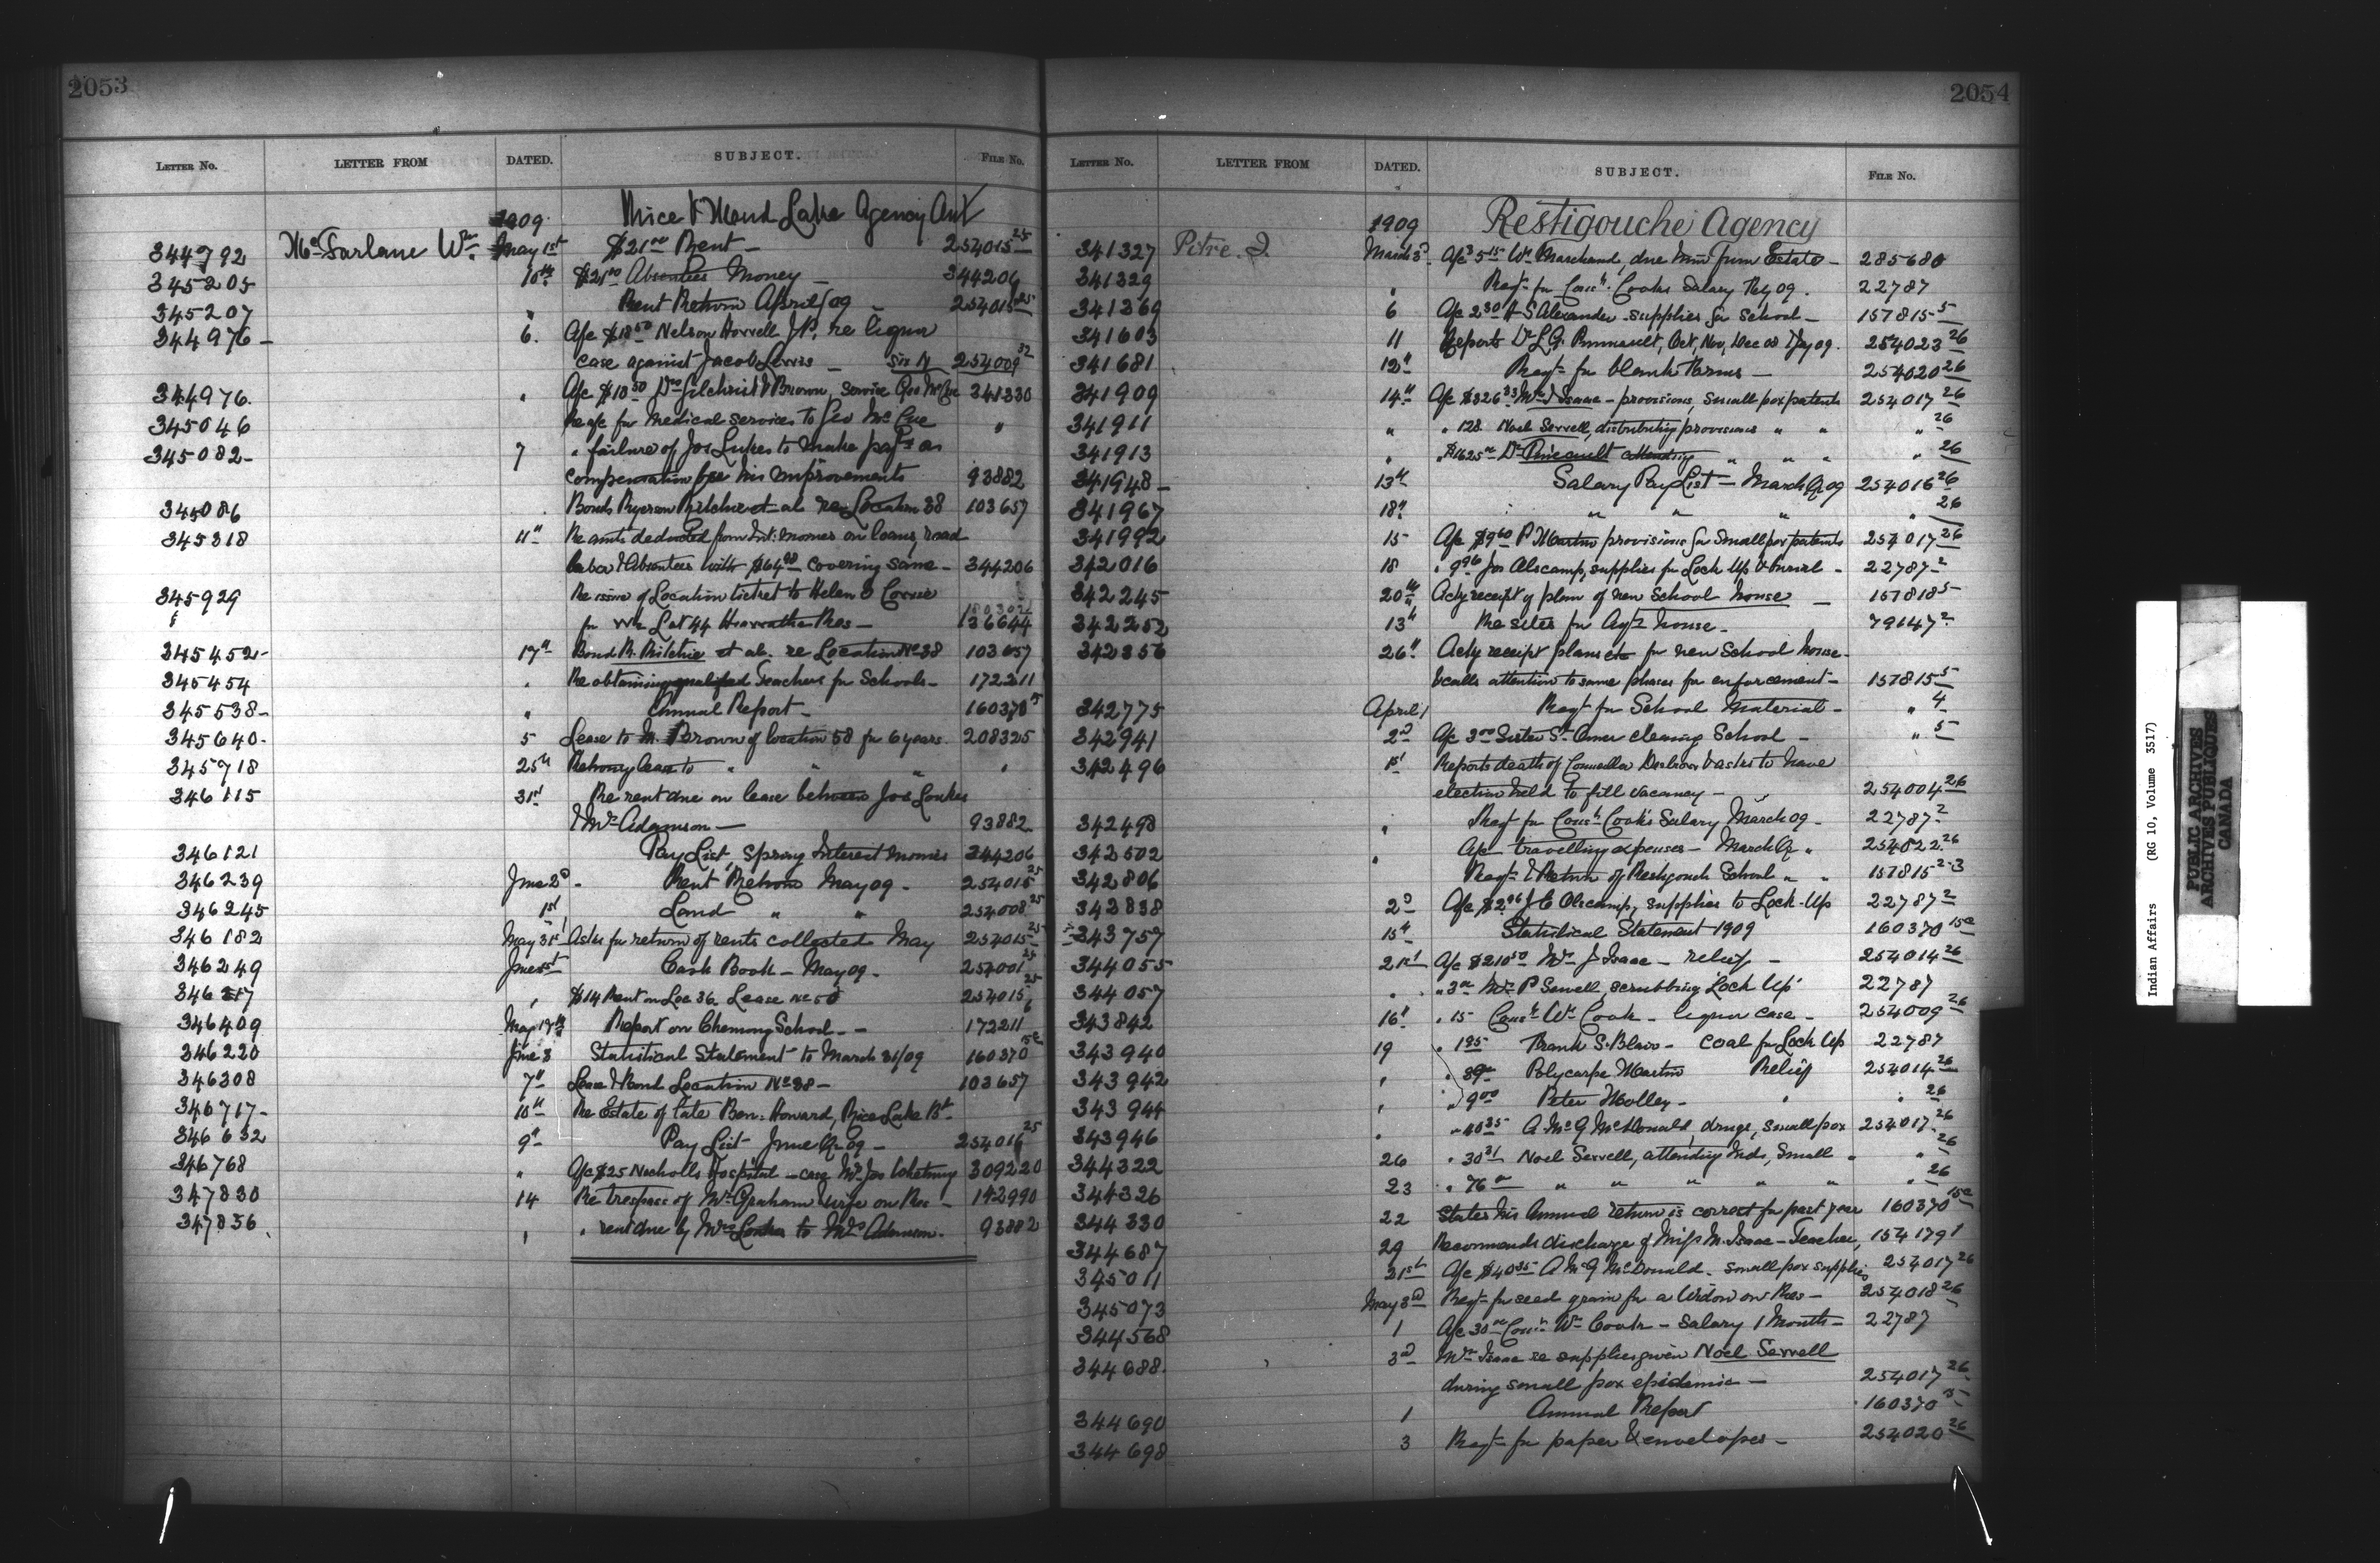 2053
LETTER No. LETTER FROM DATED. SUBJECT. FILE No.
1909 Rice & Mud Lake Agency Ont
344792 McFarlane Wm. May 1st $21.00 Rent — 254015 25
345205 10th $21.00 Absentees Money — 344206
345207 " Rent Return April/09 — 254015 25
344976 — 6. A/c $18.50 Nelson J.P. re liquor
case against Jacob — 254009 32
344976. " A/c $18.50 Drs Gilchrist & Brown, Service Geo McCue 341330
345046 Re a/c for medical services to Geo McCue "
345082 — 7 " failure of Jos Lukes to make pay't as
compensation for his improvements 93882
345086 . Bonds Ryerson Ritchie et al re Location 38 103657
345318 11th Re amts deducted from Int: monies on loans, road
labor & Absentees with $64.00 covering same — 344206
345929 Re issue of Location ticket to Helen
for Lot 44 Hiawatha Res — 136644
345452 — 17th Bond R. Ritchie et al. re Location No 38 103657
345454 . Re obtaining qualified Teachers for Schools — 172211
345538 — " Annual Report — 160370 5
345640. 5 Lease to M. Brown of location 58 for 6 years. 208325
345718 25th lease to " " " "
346115 31st Re rent due on lease between Jos Loukes
& Mrs Adamson — 93882
346121 Pay List Spring Interest monies 344206
346239 June 2d — Rent Return May 09 — 254015 25
346245 1st Land " " 254008 25
346182 May 31st Asks for return of rents collected May 254015 25
346249 June 1st Cash Book — May 09 — 254001 25
346217 " $14 Rent on Loc 36 Lease No 50 254015
346409 May 17th Report on Chemong School — 172211 6
346220 June 3 Statistical Statement to March 31/09 160370
346308 7th Lease & Bond Location No 38 — 103657
346717 — 10th Re Estate of late Ben: Howard, Rice Lake Bd.
346632 9th Pay List June Qr 09 — 254016 25
346768 " A/c $25 Nicholls Hospital — case Mrs Jos Whetung 309220
347830 14 Re trespass of Mr Graham & wife on Res — 142990
347836 " " rent due by Mrs Loukes to Mrs Adamson. 93882
2054
LETTER No. LETTER FROM DATED. SUBJECT. FILE No.
1909 Restigouche Agency
341327 Pitre. J. March 3d A/c 3 5.15 Wm Marchand, due him from Estate — 285680
341329 " Reqt for Cons'h Cooks Salary Feby 09. 22787
341369 6 A/c 2.30 H S Alexander supplies for School — 157815 5
341603 11 Reports Dr L.G. Pinault, Oct, Nov, Dec 08 Jy 09. 254023 26
341681 12th Reqt for blank forms — 254020 26
341909 14th A/c $326.33 Mrs J Isaac — provisions, small pox patients 254017 26
341911 " " 128 Noel Servell, distributing provisions " " " 26
341913 " $1625.00 Dr Pineault attending " " " " 26
341948 — 13th Salary Pay List — March Qr 09 254016 26
341967 18th " " " " 26
341992 15 A/c $9.60 P Martin provisions for Smallpox patients 254017 26
342016 18 " 9.96 Jos Alscamp, supplies for Lock Up & burial — 22787 2
342245 20th Ackg receipt of plan of new School house — 157815 5
342252 13th Re sites for Agt's house — 79147 2
342356 26th Ackg receipt plans etc for new School house —
& calls attention to some phases for enforcement — 157815 5
342775 April 1 Reqt for School Material — " 4
342941 2d A/c 3.00 Sister St. Omer cleaning School — " 5
342496 1st Reports death of Councillor & asks to have
election held to fill vacancy — 254004 26
342498 " Reqt for Cons'h Cook's Salary March 09 — 22787 2
342502 " A/c travelling expenses — March Qr " 254022 26
342806 Reqt & Return of Restigouch School " " 157815 2-3
342838 2d A/c $2.96 J C Alscamp, supplies to Lock-Up 22787 2
343757 15th Statistical Statement 1909 160370 15a
344055 21st A/c $210.50 Mrs J Isaac — relief — 254014 26
344057 " " 3.00 Mrs P Sewell, scrubbing Lock Up 22787
343842 16th " 15 — Cons'h Wm Cook — liquor case — 254009 26
343940 19 " 1.95 Frank S. Blair — Coal for Lock Up 22787
343942 " " 39.00 Polycarpe Martin Relief 254014 26
343944 " " 9.00 Peter Molley — " " 26
343946 " " 40.35 A McG McDonald, drugs, small pox 254017 26
344322 26 " 30.31 Noel Servell, attending Inds, Small " " 26
344326 23 " 76.00 " " " " " " 26
344330 22 States his Annual return is correct for past year 160370 15a
344687 29 Recommends discharge of Miss M. Isaac — Teacher, 154179 1
345011 21st A/c $40.35 A McG McDonald. small pox supplies 254017 26
345073 May 3d Reqt for seed grain for a Widow on Res — 254018 26
344568 1 A/c 30.00 Cons'h Wm Cook — Salary 1 Month — 22787
344688. 3d Mrs Isaac re supplies given Noel Servell
during small pox epidemic — 254017 26
344690 1 Annual Report 160370 15
344698 3 Reqt for paper & envelopes — 254020 26
Indian Affairs (RG 10, Volume 3517)
PUBLIC ARCHIVES
ARCHIVES PUBLIQUES
CANADA